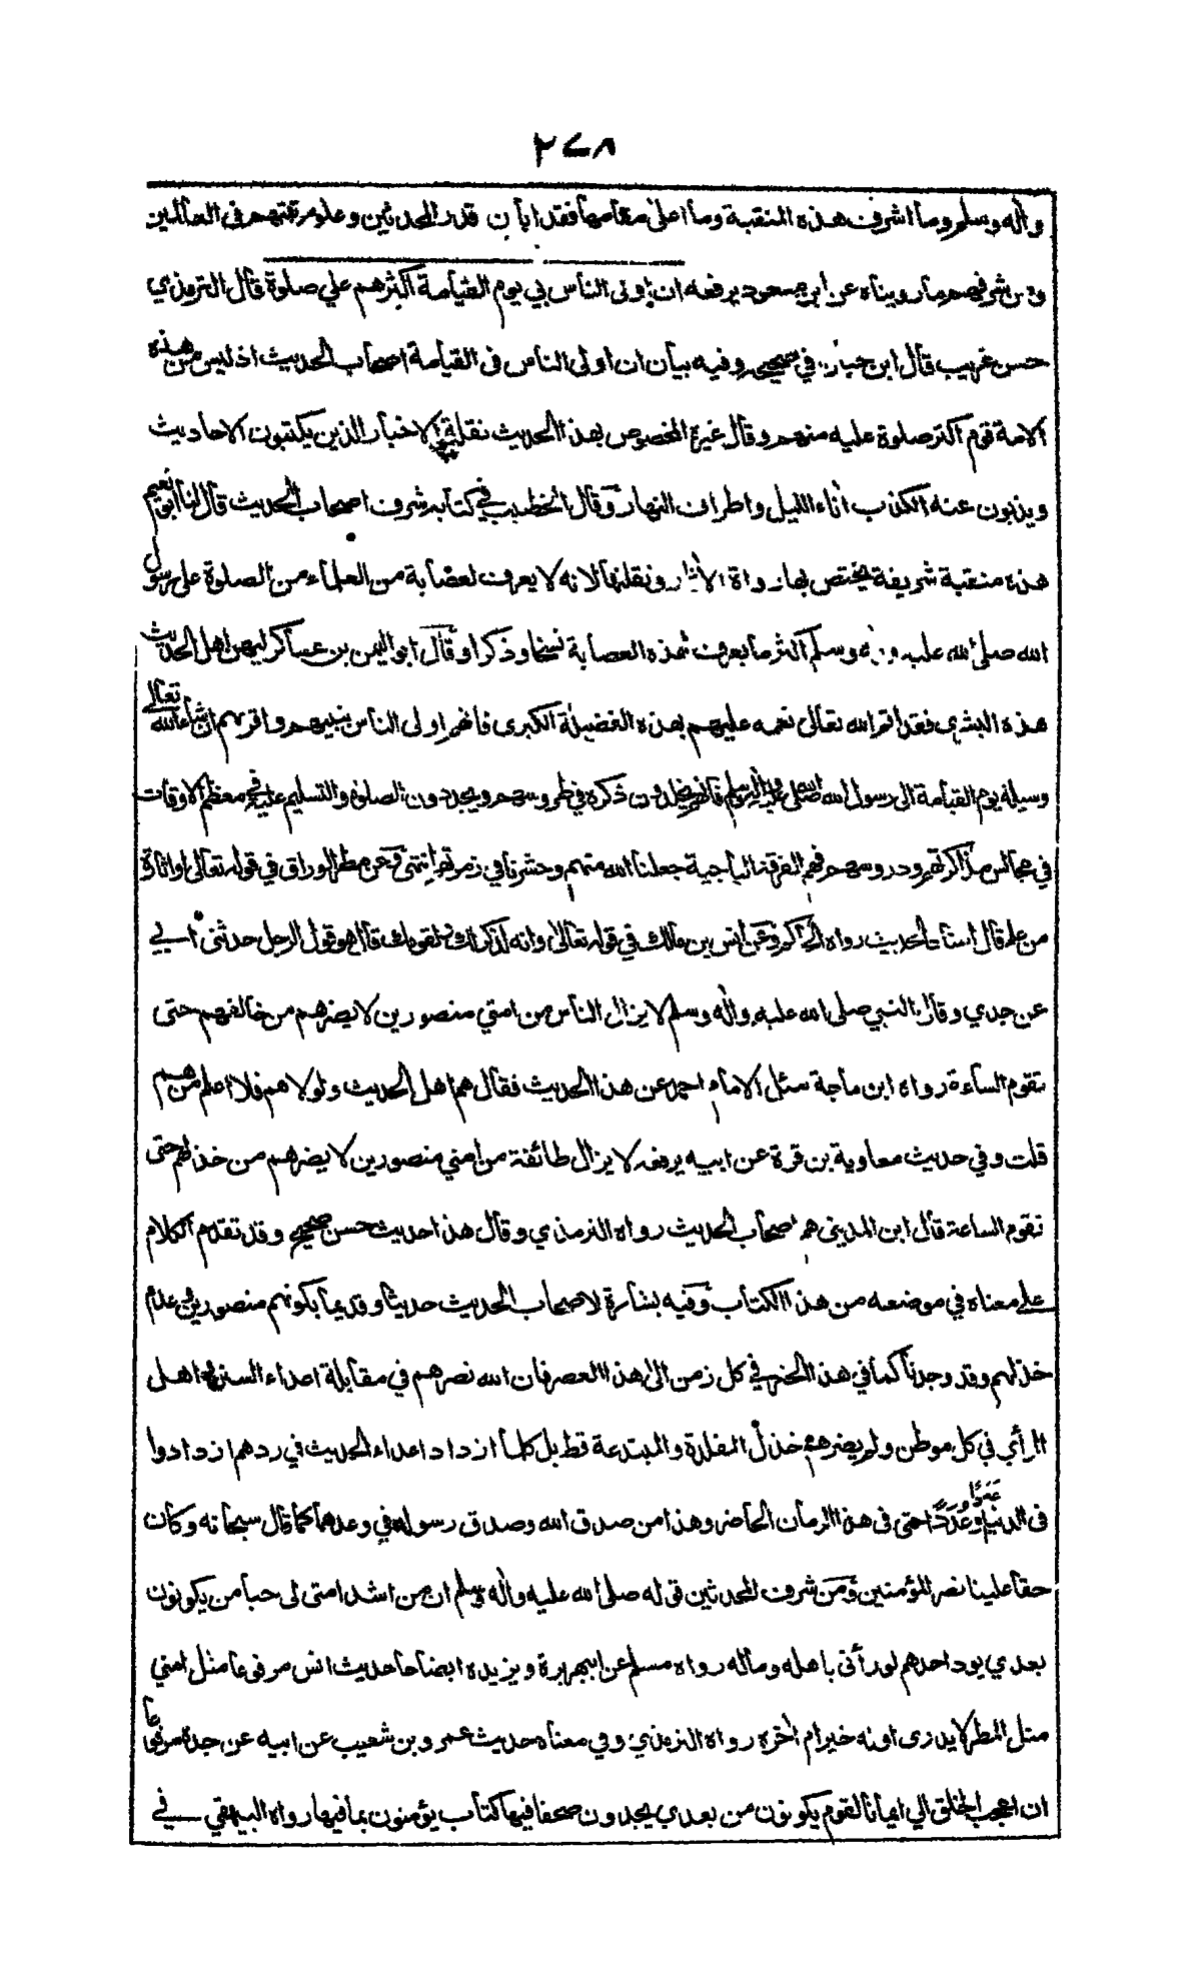 ٢٧٨
وأله وسلم وما اشرف هذه المنقبة وما اعلى مقامها فقد ابأن قدر المحدثين وعلو مرتبتهم فى العالمين
ومن شرفهم ما رويناه عن ابن مسعود يرفعه ان اولى الناس بي يوم القيامة اكثرهم علي صلوة قال الترمذي
حسن غريب قال ابن حبان في صحيحه وفيه بيان ان اولى الناس فى القيامة اصحاب الحديث اذ ليس من هذه
الامة قوم اكثر صلوة عليه منهم وقال غيره المخصوص بهذا الحديث نقلة الاخبار الذين يكتبون الاحاديث
ويذبون عنه الكذب أناء الليل واطراف النهار وقال الخطيب في كتابه شرف اصحاب الحديث قال لنا ابو نعيم
هذه منقبة شريفة يختص بها رواة الأثار ونقلتها لانه لا يعرف لعصابة من العلماء من الصلوة على رسول
الله صلى الله عليه وأله وسلم اكثر ما يعرف لهذه العصابة نسخا وذكرا وقال ابو اليمن بن عساكر ليهن اهل الحديث
هذه البشرى فقد اتم الله تعالى نعمه عليهم بهذه الفضيلة الكبرى فانهم اولى الناس بنبيهم واقربهم ان شاء الله تعالى
وسيلة يوم القيامة الى رسول الله صلى الله عليه وأله وسلم فانهم يخلدون ذكره في طروسهم ويجددون الصلوة والتسليم عليه في معظم الاوقات
في مجالس مذاكرتهم ودروسهم فهم الفرقة الناجية جعلنا الله منهم وحشرنا في زمرتهم انتهى وعن مطر الوراق في قوله تعالى او اثارة
من علم قال اسناد الحديث رواه الحاكم وعن انس بن مالك في قوله تعالى وانه لذكر لك ولقومك قال هو قول الرجل حدثنى ابي
عن جدي وقال النبي صلى الله عليه وأله وسلم لا يزال الناس من امتي منصورين لا يضرهم من خالفهم حتى
تقوم الساعة رواه ابن ماجة سئل الامام احمد عن هذا الحديث فقال هم اهل الحديث ولولا هم فلا اعلم من هم
قلت وفي حديث معاوية بن قرة عن ابيه يرفعه لا يزال طائفة من امتي منصورين لا يضرهم من خذلهم حتى
تقوم الساعة قال ابن المديني هم اصحاب الحديث رواه الترمذي وقال هذا حديث حسن صحيح وقد تقدم الكلام
على معناه في موضعه من هذا الكتاب وفيه بشارة لاصحاب الحديث حديثا وقديما بكونهم منصورين في عدم
خذلهم وقد وجدنا كما في هذا الخبر في كل زمن الى هذا العصر فان الله نصرهم في مقابلة اعداء السنة واهل
الرأي في كل موطن ولم يضرهم خذل المقلدة والمبتدعة قط بل كلما ازداد اعداء الحديث في ردهم ازدادوا
فى الدنيا عَدَدًا وعُدَدًا حتى فى هذا الزمان الحاضر وهذا من صدق الله وصدق رسوله في وعدهما كما قال سبحانه وكان
حقا علينا نصر المؤمنين ومن شرف المحدثين قوله صلى الله عليه وأله وسلم ان من اشد امتى لى حبا من يكونون
بعدي يود احدهم لو رأنى باهله وماله رواه مسلم عن ابي هريرة ويزيده ايضاحا حديث انس مرفوعا مثل امتي
مثل المطر لا يدرى اوله خير ام أخره رواه الترمذي وفي معناه حديث عمرو بن شعيب عن ابيه عن جده مرفوعا
ان اعجب الخلق الي ايمانا لقوم يكونون من بعدي يجدون صحفا فيها كتاب يؤمنون بما فيها رواه البيهقي في